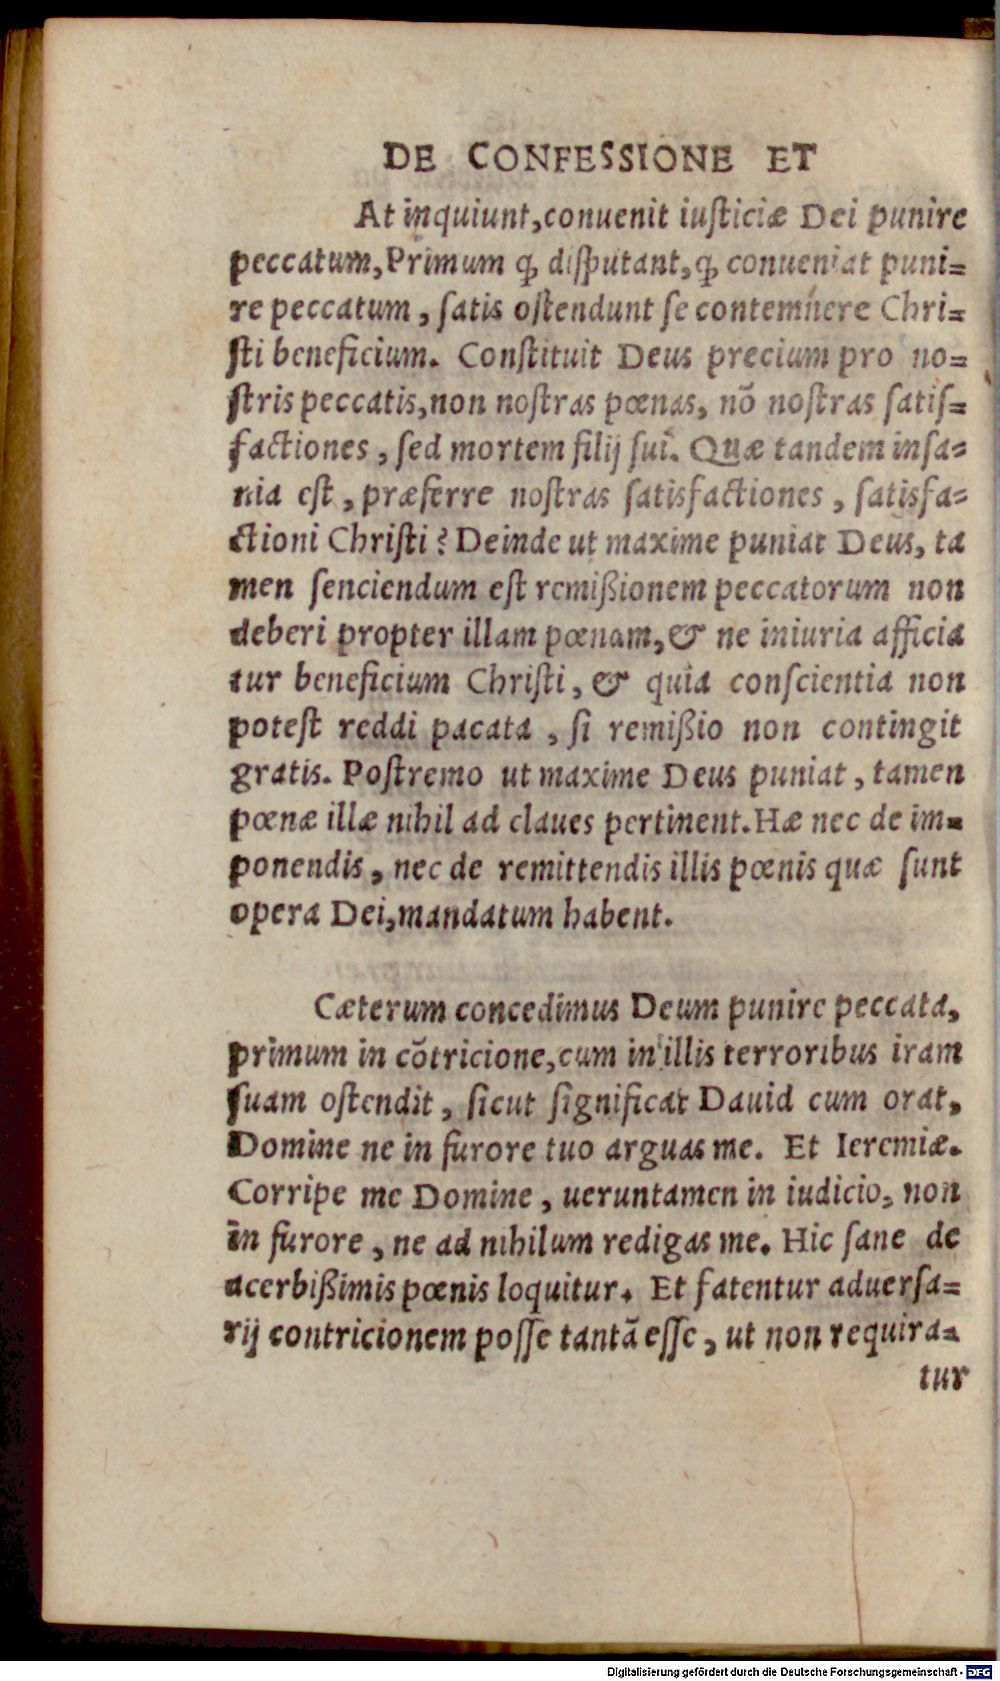 DE CONFESSIONE ET
At inquiunt, conuenit iusticiæ Dei punire
peccatum, Primum ꝙ disputant, ꝙ conueniat puni=
re peccatum, satis ostendunt se contemnere Chri=
sti beneficium. Constituit Deus precium pro no=
stris peccatis, non nostras pœnas, nõ nostras satis=
factiones, sed mortem filij sui. Quæ tandem insa=
nia est, præferre nostras satisfactiones, satisfa=
ctioni Christi? Deinde ut maxime puniat Deus, ta
men senciendum est remißionem peccatorum non
deberi propter illam pœnam, & ne iniuria afficia
tur beneficium Christi, & quia conscientia non
potest reddi pacata, si remißio non contingit
gratis. Postremo ut maxime Deus puniat, tamen
pœnæ illæ nihil ad claues pertinent. Hæ nec de im=
ponendis, nec de remittendis illis pœnis quæ sunt
opera Dei, mandatum habent.
Cæterum concedimus Deum punire peccata,
primum in cõtricione, cum in illis terroribus iram
suam ostendit, sicut significat Dauid cum orat,
Domine ne in furore tuo arguas me. Et Ieremiæ.
Corripe me Domine, ueruntamen in iudicio, non
in furore, ne ad nihilum redigas me. Hic sane de
acerbißimis pœnis loquitur. Et fatentur aduersa=
rij contricionem posse tantã esse, ut non requira=
tur
Digitalisierung gefördert durch die Deutsche Forschungsgemeinschaft - DFG